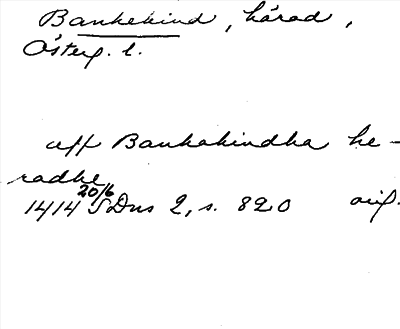 Bankekind, härad,
Österg. l.
aff Bankakindha he-
radhe
1414 20/6 SDns 2, s. 820 orig.